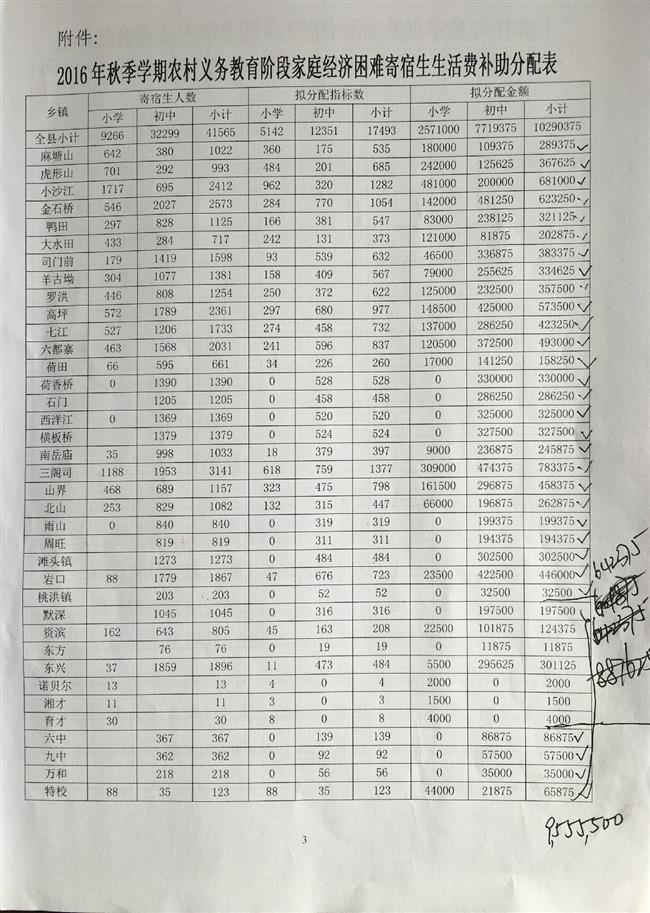 附件:
2016年秋季学期农村义务教育阶段家庭经济困难寄宿生生活费补助分配表
乡镇 寄宿生人数 拟分配指标数 拟分配金额
小学 初中 小计 小学 初中 小计 小学 初中 小计
全县小计 9266 32299 41565 5142 12351 17493 2571000 7719375 10290375
麻塘山 642 380 1022 360 175 535 180000 109375 289375
虎形山 701 292 993 484 201 685 242000 125625 367625
小沙江 1717 695 2412 962 320 1282 481000 200000 681000
金石桥 546 2027 2573 284 770 1054 142000 481250 623250
鸭田 297 828 1125 166 381 547 83000 238125 321125
大水田 433 284 717 242 131 373 121000 81875 202875
司门前 179 1419 1598 93 539 632 46500 336875 383375
羊古坳 304 1077 1381 158 409 567 79000 255625 334625
罗洪 446 808 1254 250 372 622 125000 232500 357500
高坪 572 1789 2361 297 680 977 148500 425000 573500
七江 527 1206 1733 274 458 732 137000 286250 423250
六都寨 463 1568 2031 241 596 837 120500 372500 493000
荷田 66 595 661 34 226 260 17000 141250 158250
荷香桥 0 1390 1390 0 528 528 0 330000 330000
石门 1205 1205 0 458 458 0 286250 286250
西洋江 0 1369 1369 0 520 520 0 325000 325000
横板桥 1379 1379 0 524 524 0 327500 327500
南岳庙 35 998 1033 18 379 397 9000 236875 245875
三阁司 1188 1953 3141 618 759 1377 309000 474375 783375
山界 468 689 1157 323 475 798 161500 296875 458375
北山 253 829 1082 132 315 447 66000 196875 262875
雨山 0 840 840 0 319 319 0 199375 199375
周旺 819 819 0 311 311 0 194375 194375
滩头镇 1273 1273 0 484 484 0 302500 302500
岩口 88 1779 1867 47 676 723 23500 422500 446000
桃洪镇 203 203 0 52 52 0 32500 32500
默深 1045 1045 0 316 316 0 197500 197500
资滨 162 643 805 45 163 208 22500 101875 124375
东方 76 76 0 19 19 0 11875 11875
东兴 37 1859 1896 11 473 484 5500 295625 301125
诺贝尔 13 13 4 0 4 2000 0 2000
湘才 11 11 3 0 3 1500 0 1500
育才 30 30 8 0 8 4000 0 4000
六中 367 367 0 139 139 0 86875 86875
九中 362 362 0 92 92 0 57500 57500
万和 218 218 0 56 56 0 35000 35000
特校 88 35 123 88 35 123 44000 21875 65875
9,555,500
3